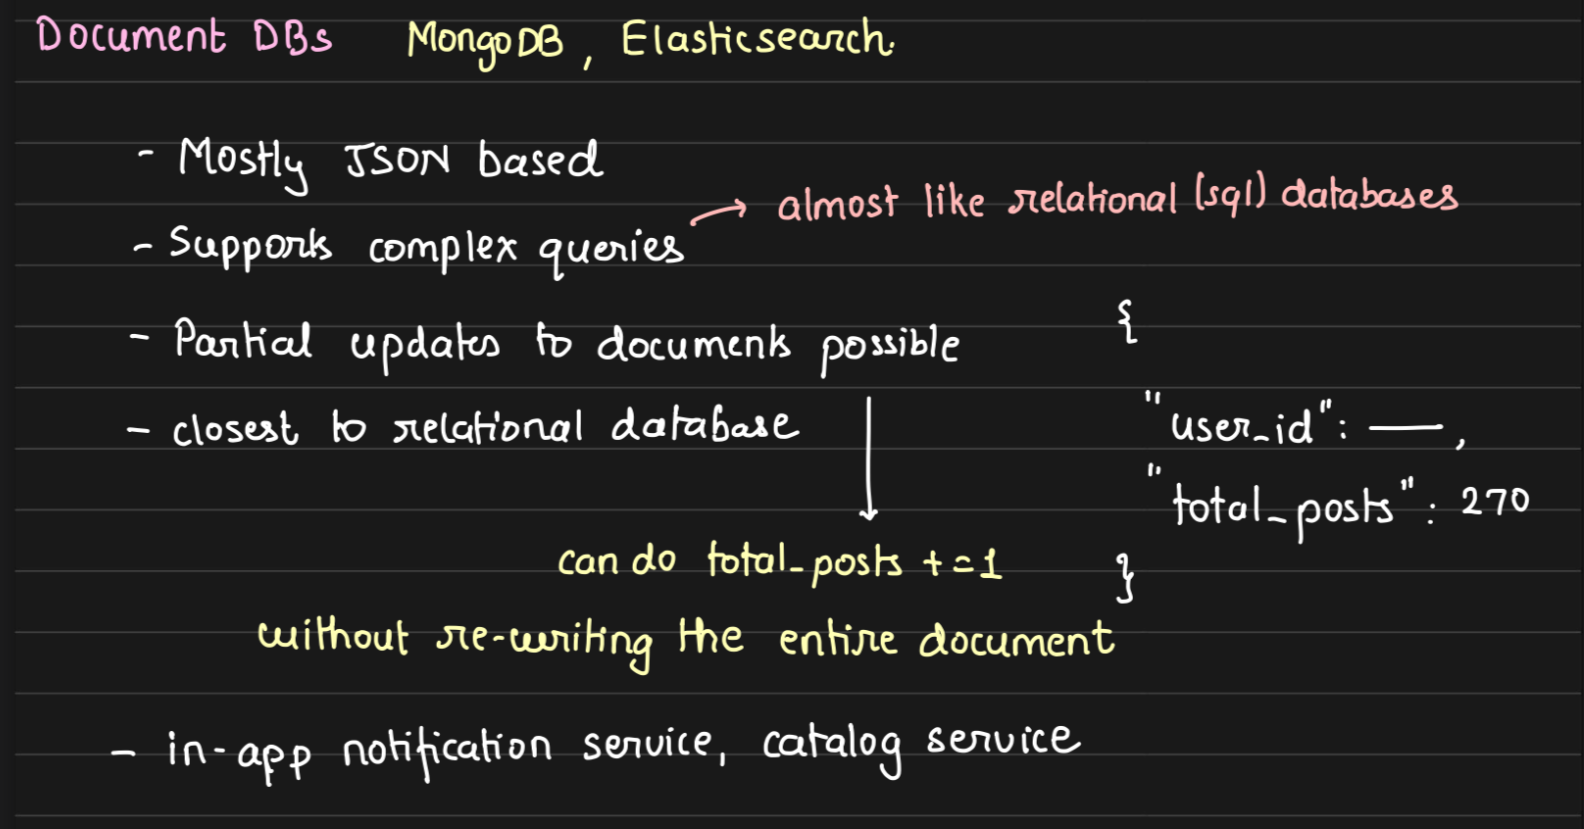 Document DBs MongoDB, Elasticsearch.
- Mostly JSON based
- Supports complex queries → almost like relational (sql) databases
- Partial updates to documents possible
- closest to relational database
can do total_posts +=1
without re-writing the entire document
{
"user_id": ——,
"total_posts": 270
}
- in-app notification service, catalog service